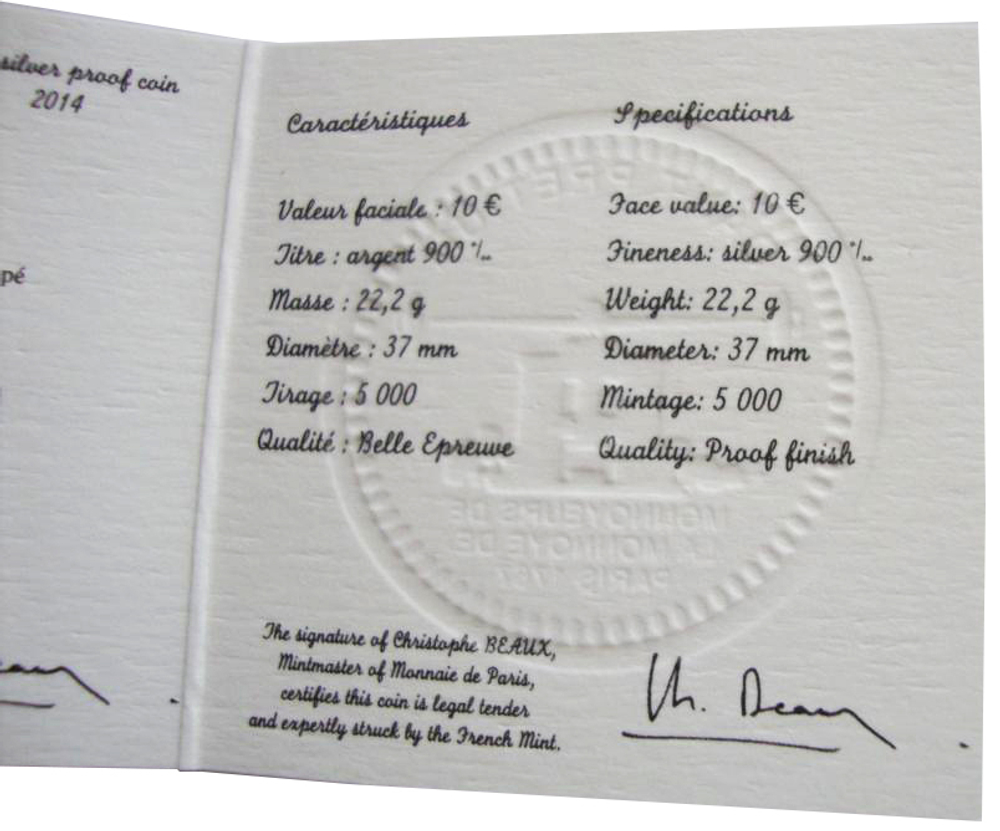 silver proof coin
2014
pé
Caractéristiques
Valeur faciale : 10 €
Titre : argent 900 ‰
Masse : 22,2 g
Diamètre : 37 mm
Tirage : 5 000
Qualité : Belle Epreuve
Specifications
Face value: 10 €
Fineness: silver 900 ‰
Weight: 22,2 g
Diameter: 37 mm
Mintage: 5 000
Quality: Proof finish
MONNOYEURS DE
LA MONNOIE DE
PARIS
The signature of Christophe BEAUX,
Mintmaster of Monnaie de Paris,
certifies this coin is legal tender
and expertly struck by the French Mint.
Ch. Beaux